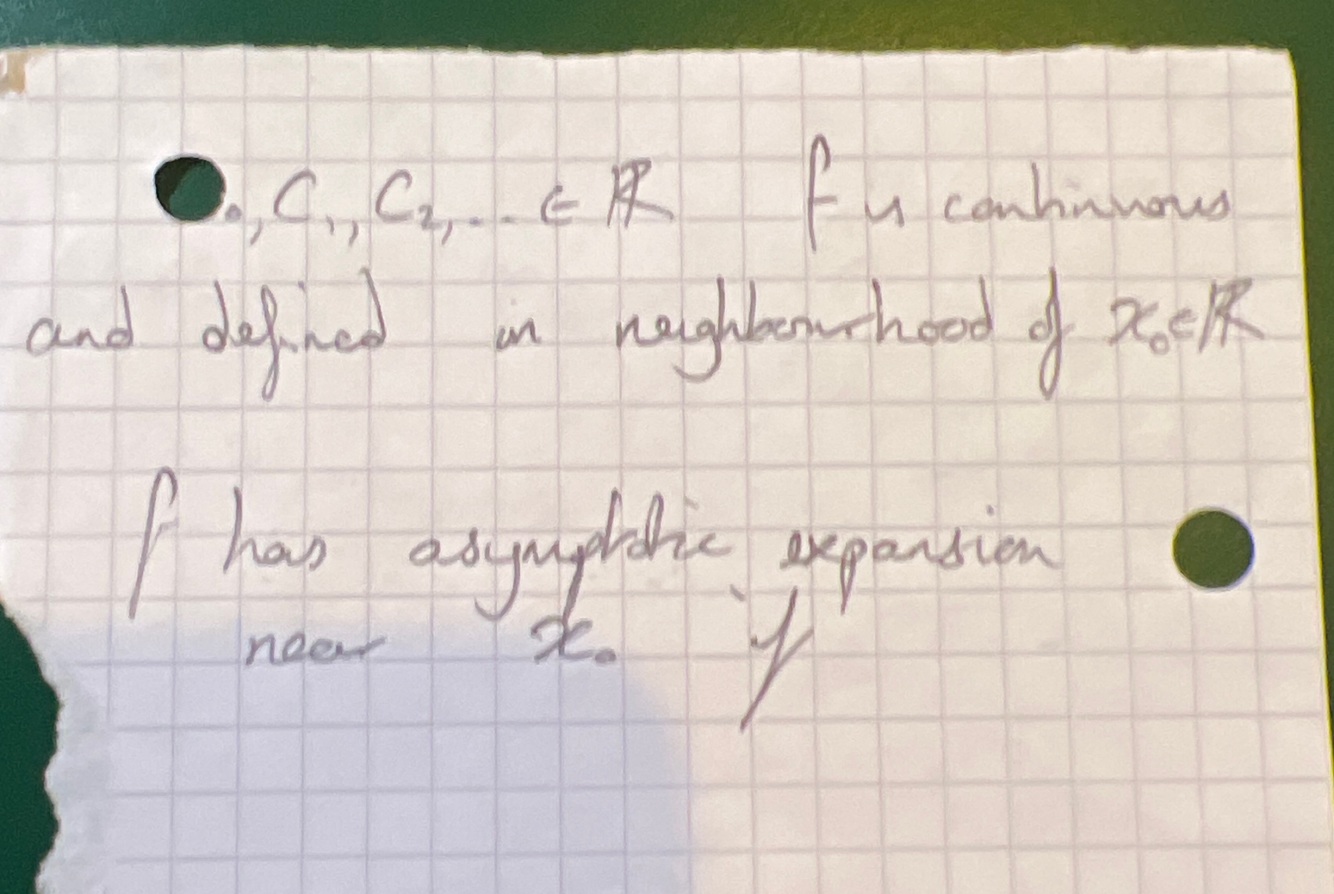 ₀, C₁, C₂, ... ∈ ℝ f is continuous
and defined in neighbourhood of x₀ ∈ ℝ
f has asymptotic expansion
near x₀ if